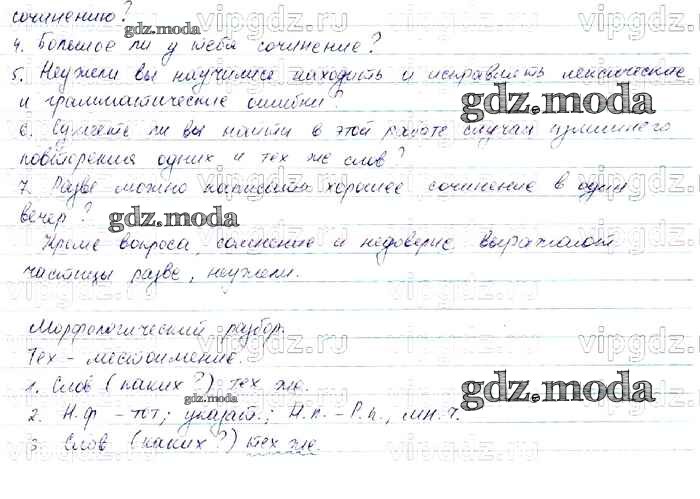 сочинению?
4. Большое ли у тебя сочинение?
5. Неужели вы научились находить и исправлять лексические
и грамматические ошибки?
6. Сумеете ли вы найти в этой работе случаи излишнего
повторения одних и тех же слов?
7. Разве можно написать хорошее сочинение в один
вечер?
Кроме вопроса, сомнение и недоверие выражают
частицы разве, неужели.
Морфологический разбор.
Тех - местоимение.
1. Слов (каких?) тех же.
2. Н.ф - тот; указат.; Н.п. - Р.п., мн.ч.
3. Слов (каких?) тех же.
gdz.moda
gdz.moda
gdz.moda
gdz.moda
gdz.moda
vipgdz.ru